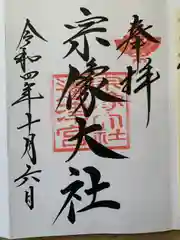 奉拝
宗像大社
令和四年十月六日